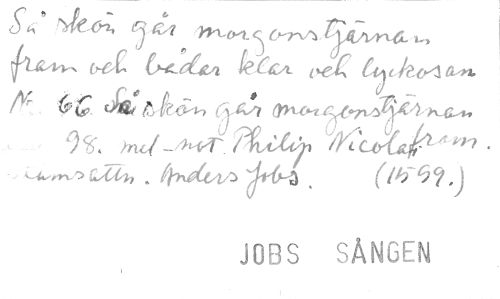 Så skön går morgonstjärnan
fram och bådar klar och lyckosan
Nr. 66 Så skön går morgonstjärnan
fram.
98. mel-not. Philip Nicolai
Anders Jobs. (1599.)
JOBS SÅNGEN